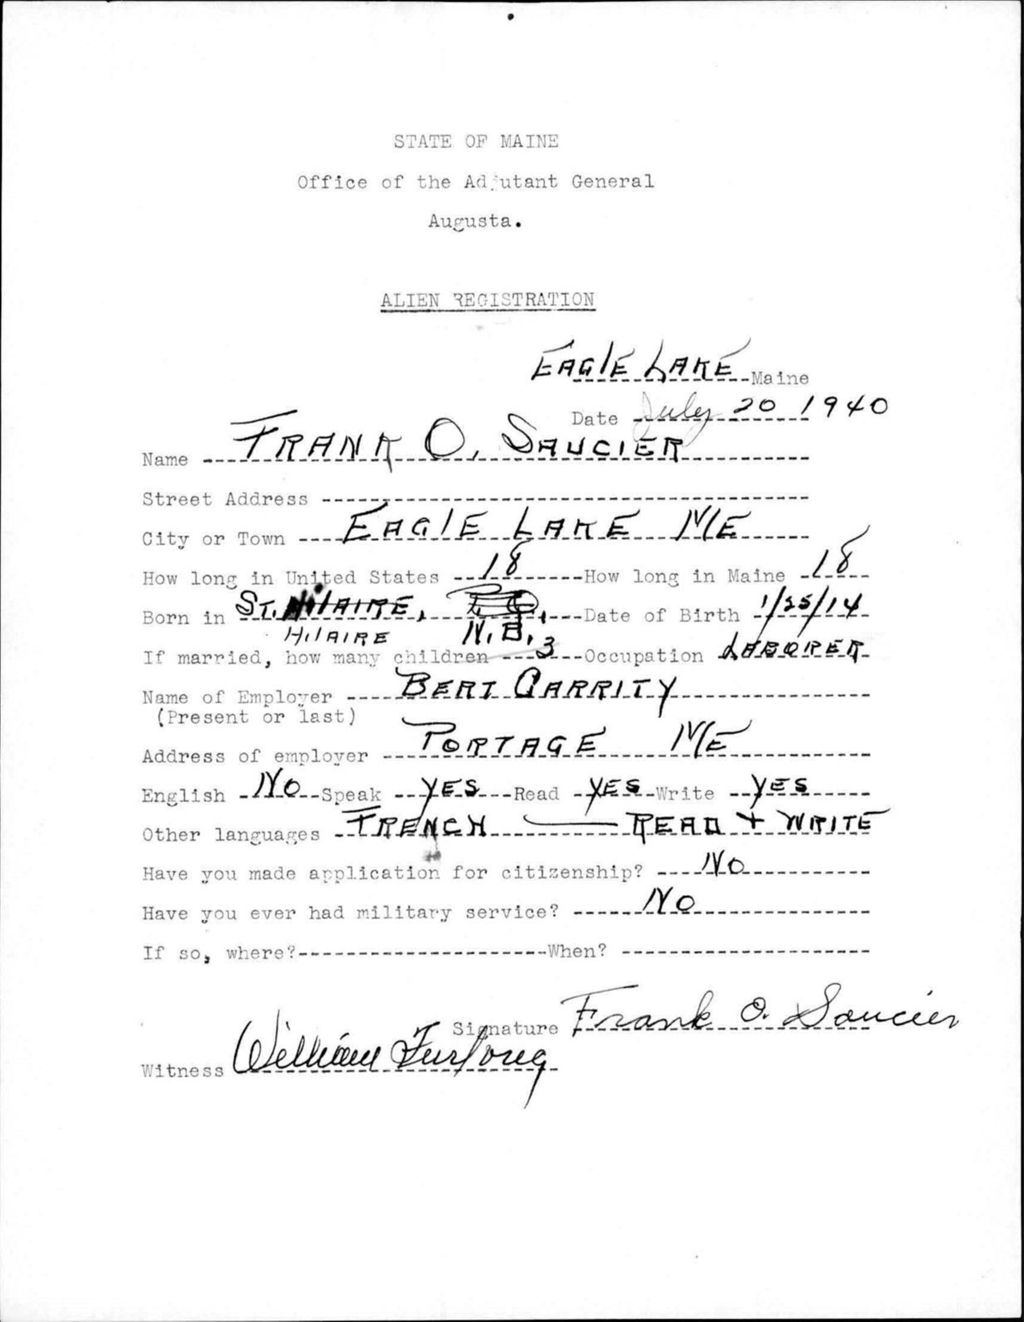 STATE OF MAINE
Office of the Adjutant General
Augusta.
ALIEN REGISTRATION
EAGLE LAKE Maine
Date July 20 1940
Name FRANK O. SAUCIER
Street Address
City or Town EAGLE LAKE ME
How long in United States 18 How long in Maine 18
Born in ST. HILAIRE, Date of Birth 1/25/14
HILAIRE N.B.
If married, how many children 3 Occupation LABORER
Name of Employer BERT GARRITY
(Present or last)
Address of employer PORTAGE ME
English NO Speak YES Read YES Write YES
Other languages FRENCH — READ + WRITE
Have you made application for citizenship? NO
Have you ever had military service? NO
If so, where? When?
Signature Frank O. Saucier
Witness William Furlong